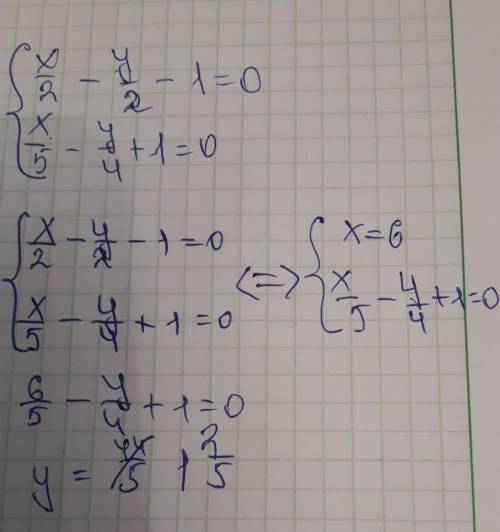 x/2 - y/2 - 1 = 0
x/5 - y/4 + 1 = 0
x/2 - y/2 - 1 = 0
x/5 - y/4 + 1 = 0
<=>
x = 6
x/5 - y/4 + 1 = 0
6/5 - y/ + 1 = 0
y = 1 2/5